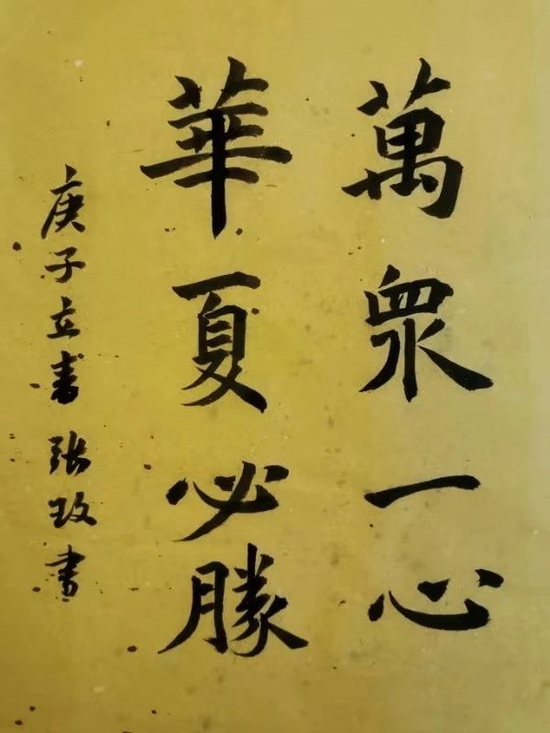 萬眾一心
華夏必勝
庚子立春张玫書